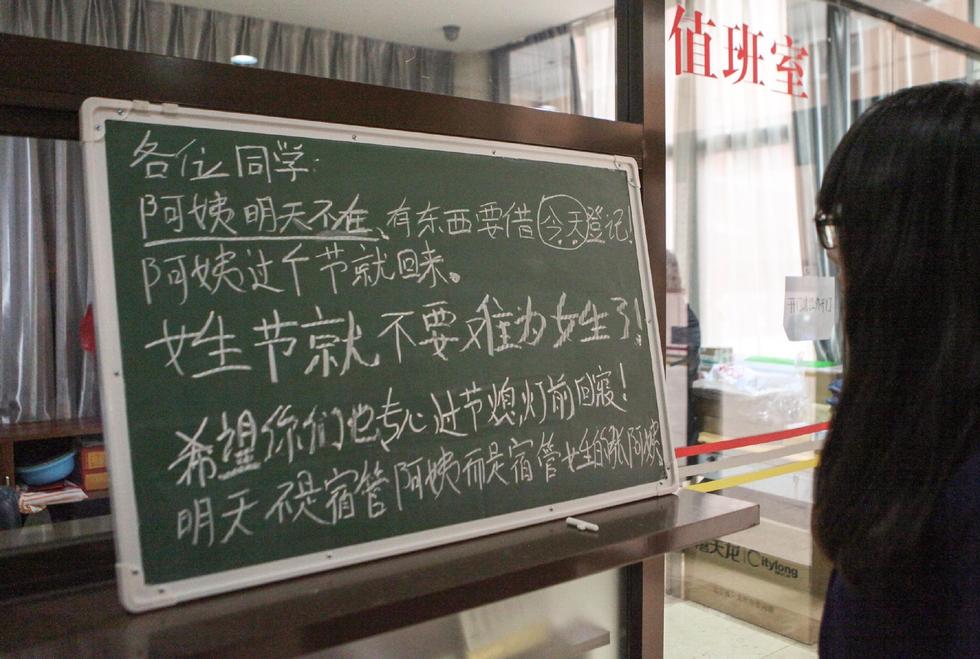 各位同学:
阿姨明天不在、有东西要借今天登记!
阿姨过个节就回来。
女生节就不要难为女生了!
希望你们也专心过节熄灯前回寝!
明天不是宿管阿姨而是宿管女生的张阿姨
值班室
Citylong